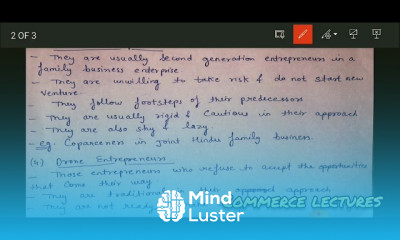 2 OF 3
- They are usually second generation entrepreneurs in a
family business enterprise
- They are unwilling to take risk & do not start new
venture.
- They follow footsteps of their predecessor
- They are usually rigid & cautious in their approach
- They are also shy & lazy
eg. Coparceners in joint Hindu family business
(4) Drone Entrepreneurs
- Those entrepreneurs who refuse to accept the opportunities
that come their way
- They are traditional their approach
- They are not ready
Mind
Luster
OMMERCE LECTURES